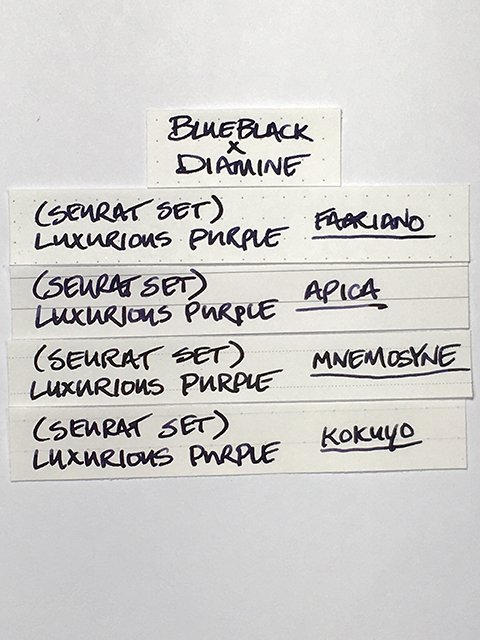 BLUEBLACK
x
DIAMINE
(SEURAT SET)
LUXURIOUS PURPLE FABRIANO
(SEURAT SET)
LUXURIOUS PURPLE APICA
(SEURAT SET)
LUXURIOUS PURPLE MNEMOSYNE
(SEURAT SET)
LUXURIOUS PURPLE KOKUYO